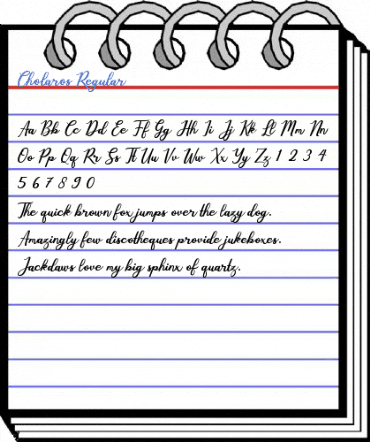 Cholaros Regular
Aa Bb Cc Dd Ee Ff Gg Hh Ii Jj Kk Ll Mm Nn
Oo Pp Qq Rr Ss Tt Uu Vv Ww Xx Yy Zz 1 2 3 4
5 6 7 8 9 0
The quick brown fox jumps over the lazy dog.
Amazingly few discotheques provide jukeboxes.
Jackdaws love my big sphinx of quartz.